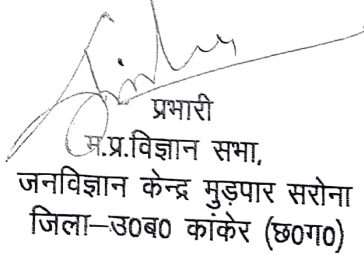 प्रभारी
म.प्र.विज्ञान सभा,
जनविज्ञान केन्द्र मुड़पार सरोना
जिला–उ०ब० कांकेर (छ०ग०)